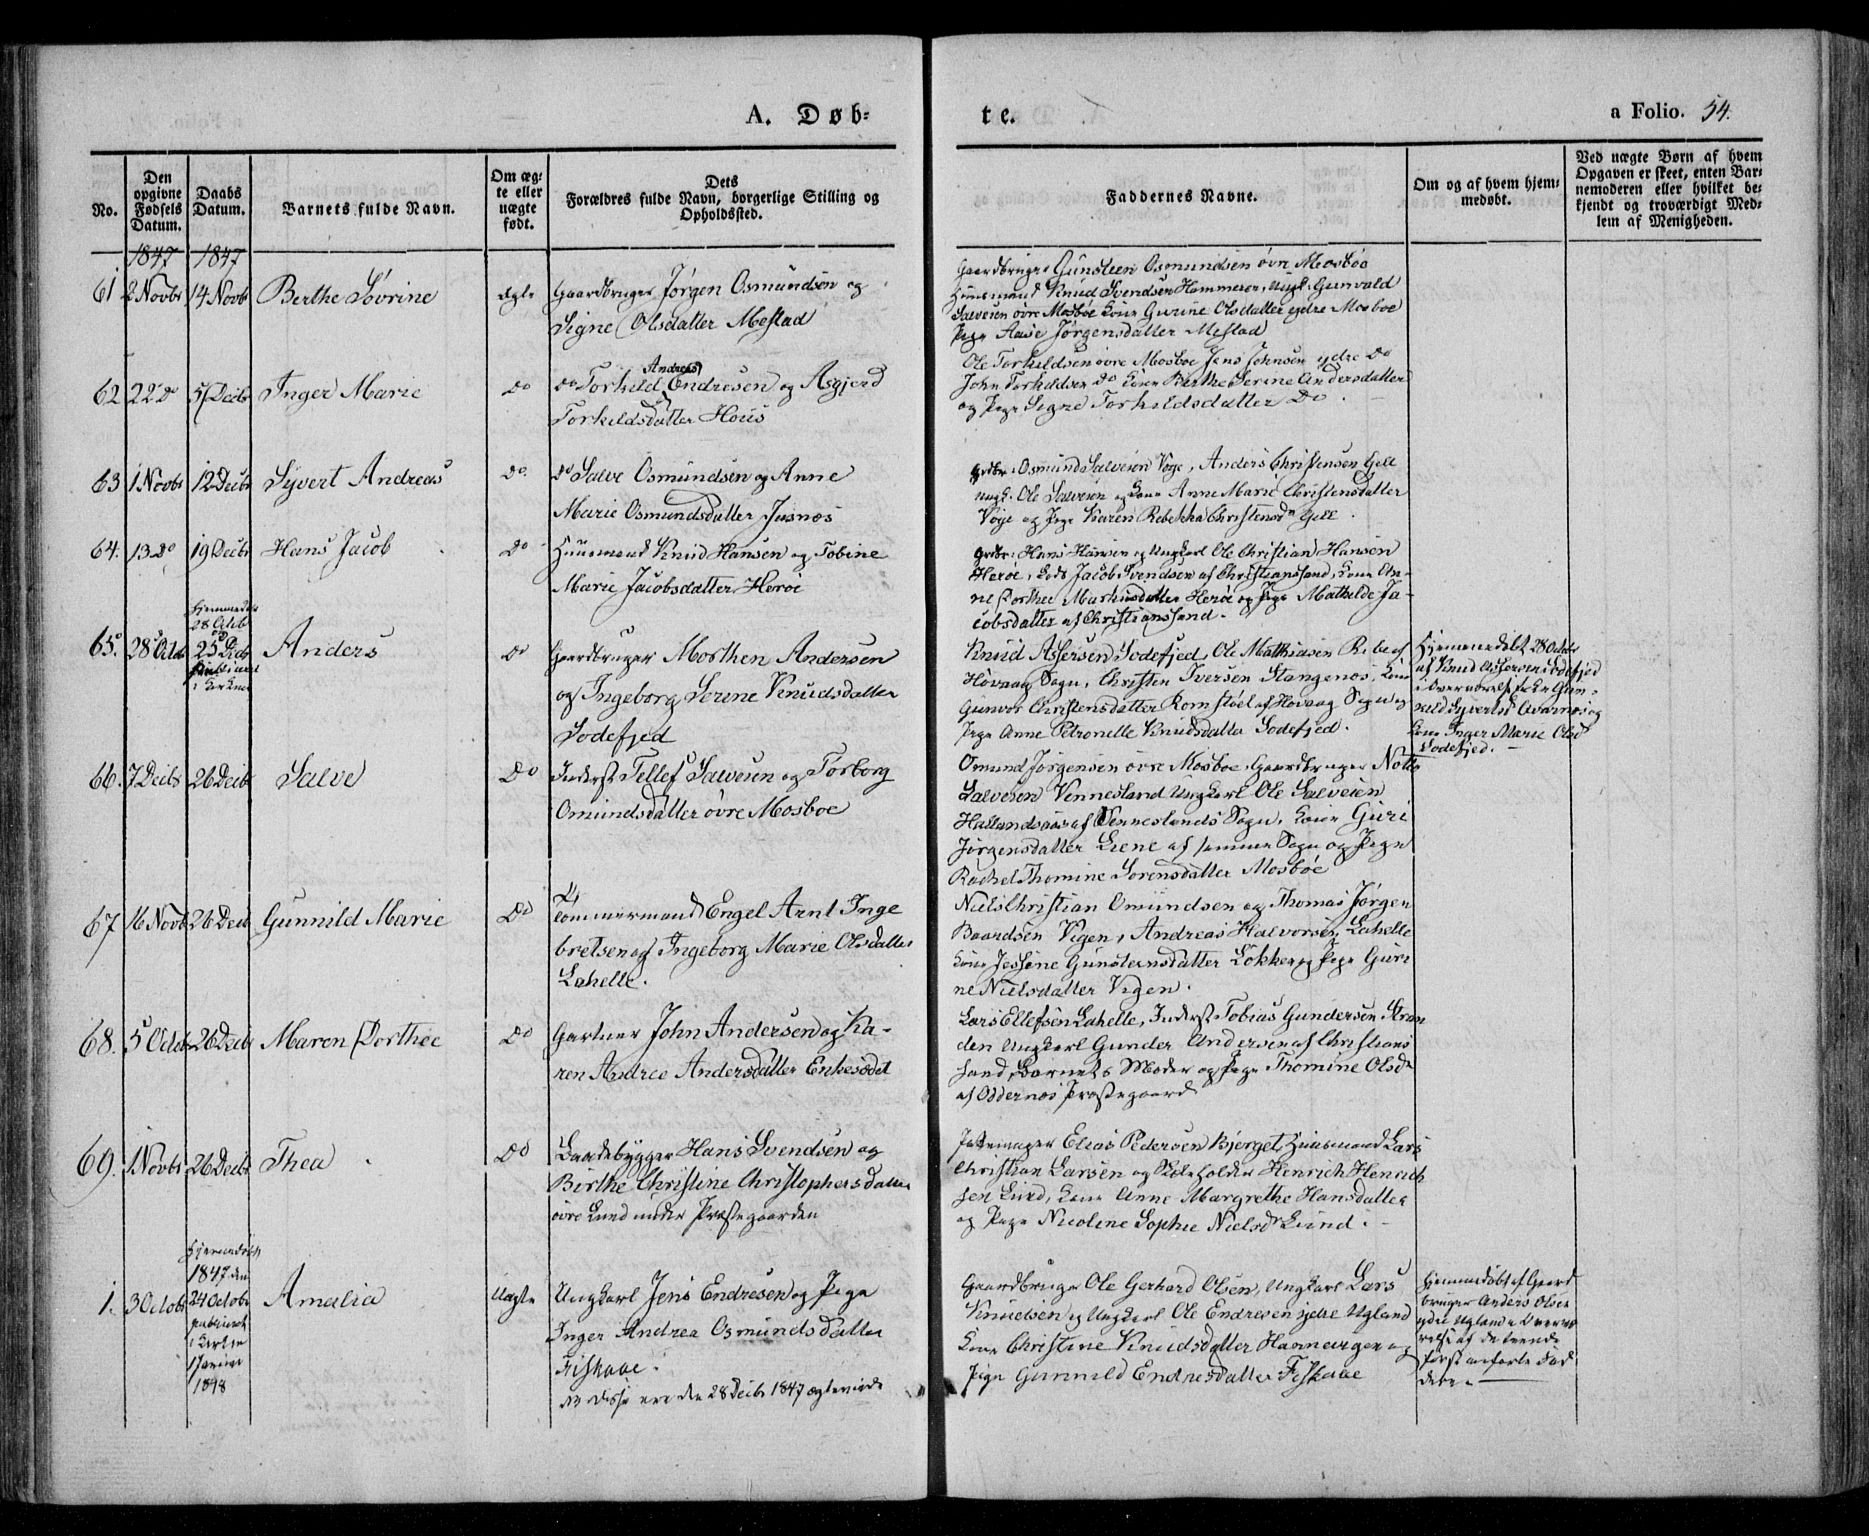 A. Døb-
te.
a Folio. 54.
No.
Den opgivne Fødsels Datum.
Daabs Datum.
Barnets fulde Navn.
Om ægte eller uægte født.
Dets Forældres fulde Navn, borgerlige Stilling og Opholdssted.
Faddernes Navne.
Om og af hvem hjemmedøbt.
Ved uægte Børn af hvem
Opgaven er skeet, enten Bar-
nemoderen eller hvilket be-
kjendt og troværdigt Med-
lem af Menigheden.
1847 1847
61 2 Novbr 14 Novbr Berthe Sovrine Ægte Gaardbruger Jørgen Osmundsen og
Signe Olsdatter Mestad
Gaardbruger Gunsteen Osmundsen övre Mosböe
Huusmand Knud Svendsen Hommeren, Ungk. Gunvald
Salvesen övre Mosböe Kone Gurine Olsdatter ydre Mosboe
Pige Aase Jørgensdatter Mestad
62 22 Do 5 Decbr Inger Marie Do Do Torkild Andreas Endresen og Asgjerd
Torkildsdatter Hous
Ole Torkildsen övre Mosboe Jens Johnsen ydre Do
John Torkildsen Do Kone Berthe Serine Andersdatter
og Pige Signe Torkildsdatter Do.
63 1 Novbr 12 Decbr Syvert Andreas Do Do Salve Osmundsen og Anne
Marie Osmundsdatter Jusnes
Grdbr: Osmund Salvesen Voge, Anders Christensen Gill
Ungk. Ole Salvesen og Kone Anne Marie Christensdatter
Voje og Pige Karen Rebekka Christensdr Gill.
64. 13 Do 19 Decbr Hans Jacob Do Huusmand Knud Hansen og Tobine
Marie Jacobsdatter Heröe
Grdbr: Hans Hansen og Ungkarl Ole Christian Hansen
Heröe, Lods Jacob Svendsen af Christianssand, Kone An-
ne Dorthee Markusdatter Heröe og Pige Mathilde Ja-
cobsdatter af Christianssand.
65. 28 Octbr
Hjemmedöbt
28 Octb
25 Decbr
i Kirken
Anders Do Gaardbruger Morthen Andersen
og Ingeborg Serine Knudsdatter
Sodefjed
Knud Assersen Sodefjed, Ole Mathiasen Ribe af
Høvaag Sogn, Christen Iversen Stangenes, Kone
Gunvor Christensdatter Romstöel af Høvaag Sogn og
Pige Anne Petronelle Knudsdatter Sodefjed.
Hjemmedöbt 28 Octbr
af Knud Assersen Sodefjed
i Overværelse af
Kone Inger Marie Olsd
Sodefjed.
66. 7 Decbr 26 Decbr Salve Do Inderst Tellef Salvesen og Torborg
Omundsdatter övre Mosboe
Osmund Jørgensen övre Mosboe, Gaardbruger Notto
Salvesen Vennesland Ungkarl Ole Salvesen
Hallandsaas af Venneslands Sogn, Kone Guri
Jørgensdatter Liene af samme Sogn og Pige
Rachel Thomine Sorensdatter Mosböe
67 16 Novbr 26 Decbr Gunnild Marie Do Tömmermand Engel Arnt Inge
bretsen og Ingeborg Marie Olsdatter
Lahelle.
Niels Christian Omundsen og Thomas Jørgen
Baardsen Vigen, Andreas Halvorsen Lahelle
Kone Jessine Gunsteensdatter Lökken og Pige Guri
ne Nielsdatter Vigen.
68. 5 Octbr 26 Decbr Maren Dorthee Do Gartner John Andersen og Ka-
ren Andree Andersdatter Enkesædet
Lars Ellefsen Lahelle, Inderst Tobias Gundersen Stran
den Ungkarl Gunder Andersen af Christians
sand, Barnets Moder og Pige Thomine Olsdr
af Oddernes Præstegaard
69. 1 Novbr 26 Decbr Thea Do Baadebygger Hans Svendsen og
Birthe Christine Christophersdatter
övre Lund under Præstegaarden
Elias Pedersen Bjerget Huusmand Lars
Christian Larsen og Skoleholder Henrich Henrich
sen Lund, Kone Anne Margrethe Hansdatter
og Pige Nicoline Sophie Nielsdr Lund.
1. 3 Octobr
Hjemmedöbt
1847 den
24 Octobr
i Kirken
1 Januar
1848
Amalia Uægte Ungkarl Jens Endresen og Pige
Inger Andrea Osmundsdatter
Fiskaae.
NB disse ere den 28 Decbr 1847 ægteviede
Gaardbruger Ole Gerhard Olsen, Ungkarl Lars
Knudsen og Ungkarl Ole Endresen ydre Ugland
Kone Christine Knudsdatter Hannevigen og
Pige Gunnild Endresdatter Fiskaae
Hjemmedöbt af Gaard
bruger Anders Olsen
ydre Ugland i Overvæ
relse af de tvende
först anförte Fad
dere.